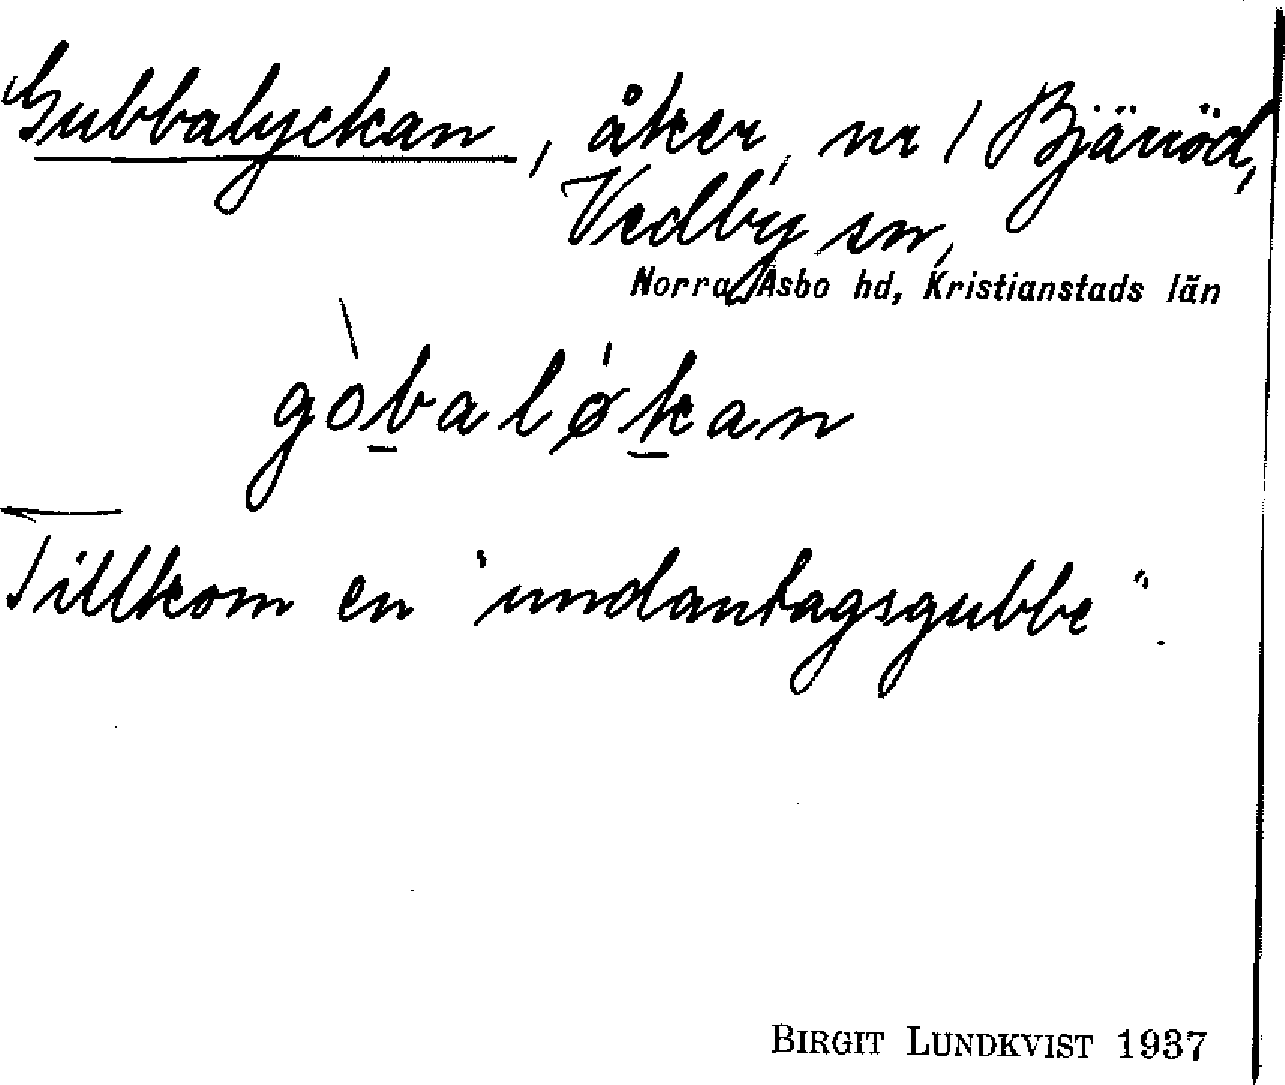 Gubbalyckan, åker, nr 1 Bjärröd,
Vedby sn,
Norra Åsbo hd, Kristianstads län
gòbaløkan
Tillkom en "undantagsgubbe".
BIRGIT LUNDKVIST 1937